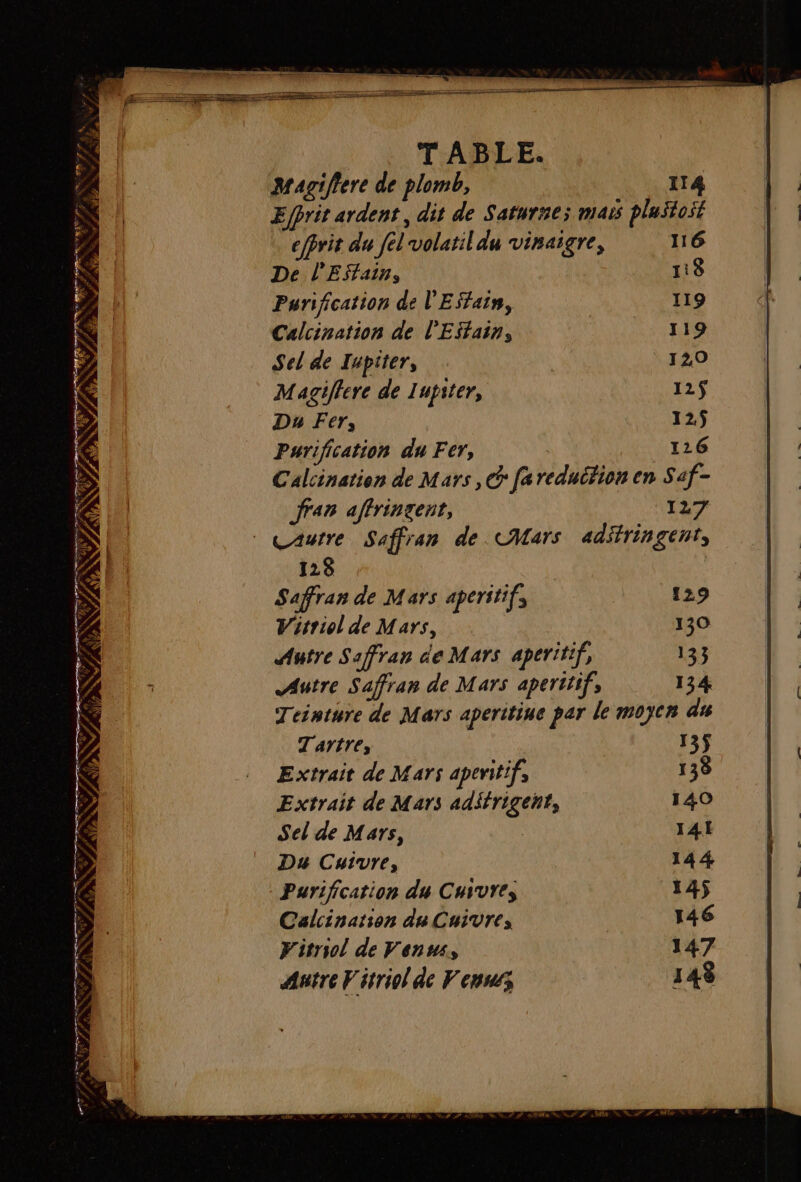 TABLE.
Magiſtere de plomb, 114
Eſprit ardent, dit de Saturne; mais pluſtoſt
eſprit du ſel volatil du vinaigre, 116
De l'Eſtain, 118
Purification de l'Eſtain, 119
Calcination de l'Eſtain, 119
Sel de Iupiter, 120
Magiſtere de Iupiter, 125
Du Fer, 125
Purification du Fer, 126
Calcination de Mars, & ſa reduction en Saf-
fran aſtringent, 127
Autre Saffran de Mars adſtringent,
128
Saffran de Mars aperitif, 129
Vitriol de Mars, 130
Autre Saffran de Mars aperitif, 133
Autre Saffran de Mars aperitif, 134
Teinture de Mars aperitiue par le moyen du
Tartre, 135
Extrait de Mars aperitif, 138
Extrait de Mars adſtrigent, 140
Sel de Mars, 141
Du Cuivre, 144
Purification du Cuivre, 145
Calcination du Cuivre, 146
Vitriol de Venus, 147
Autre Vitriol de Venus, 148